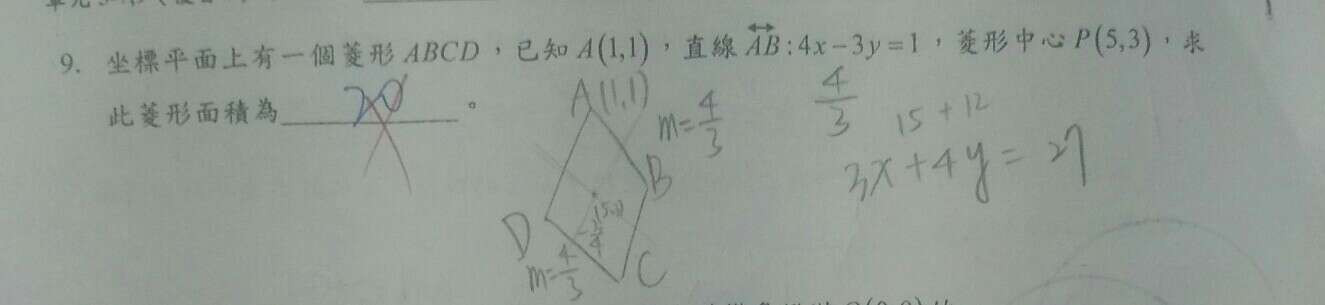 9. 坐標平面上有一個菱形ABCD，已知A(1,1)，直線AB:4x-3y=1，菱形中心P(5,3)，求
此菱形面積為 20 。
A(1,1)
m=4/3
4/3
15+12
3x+4y=27
B
(5,3)
D
m=4/3
C